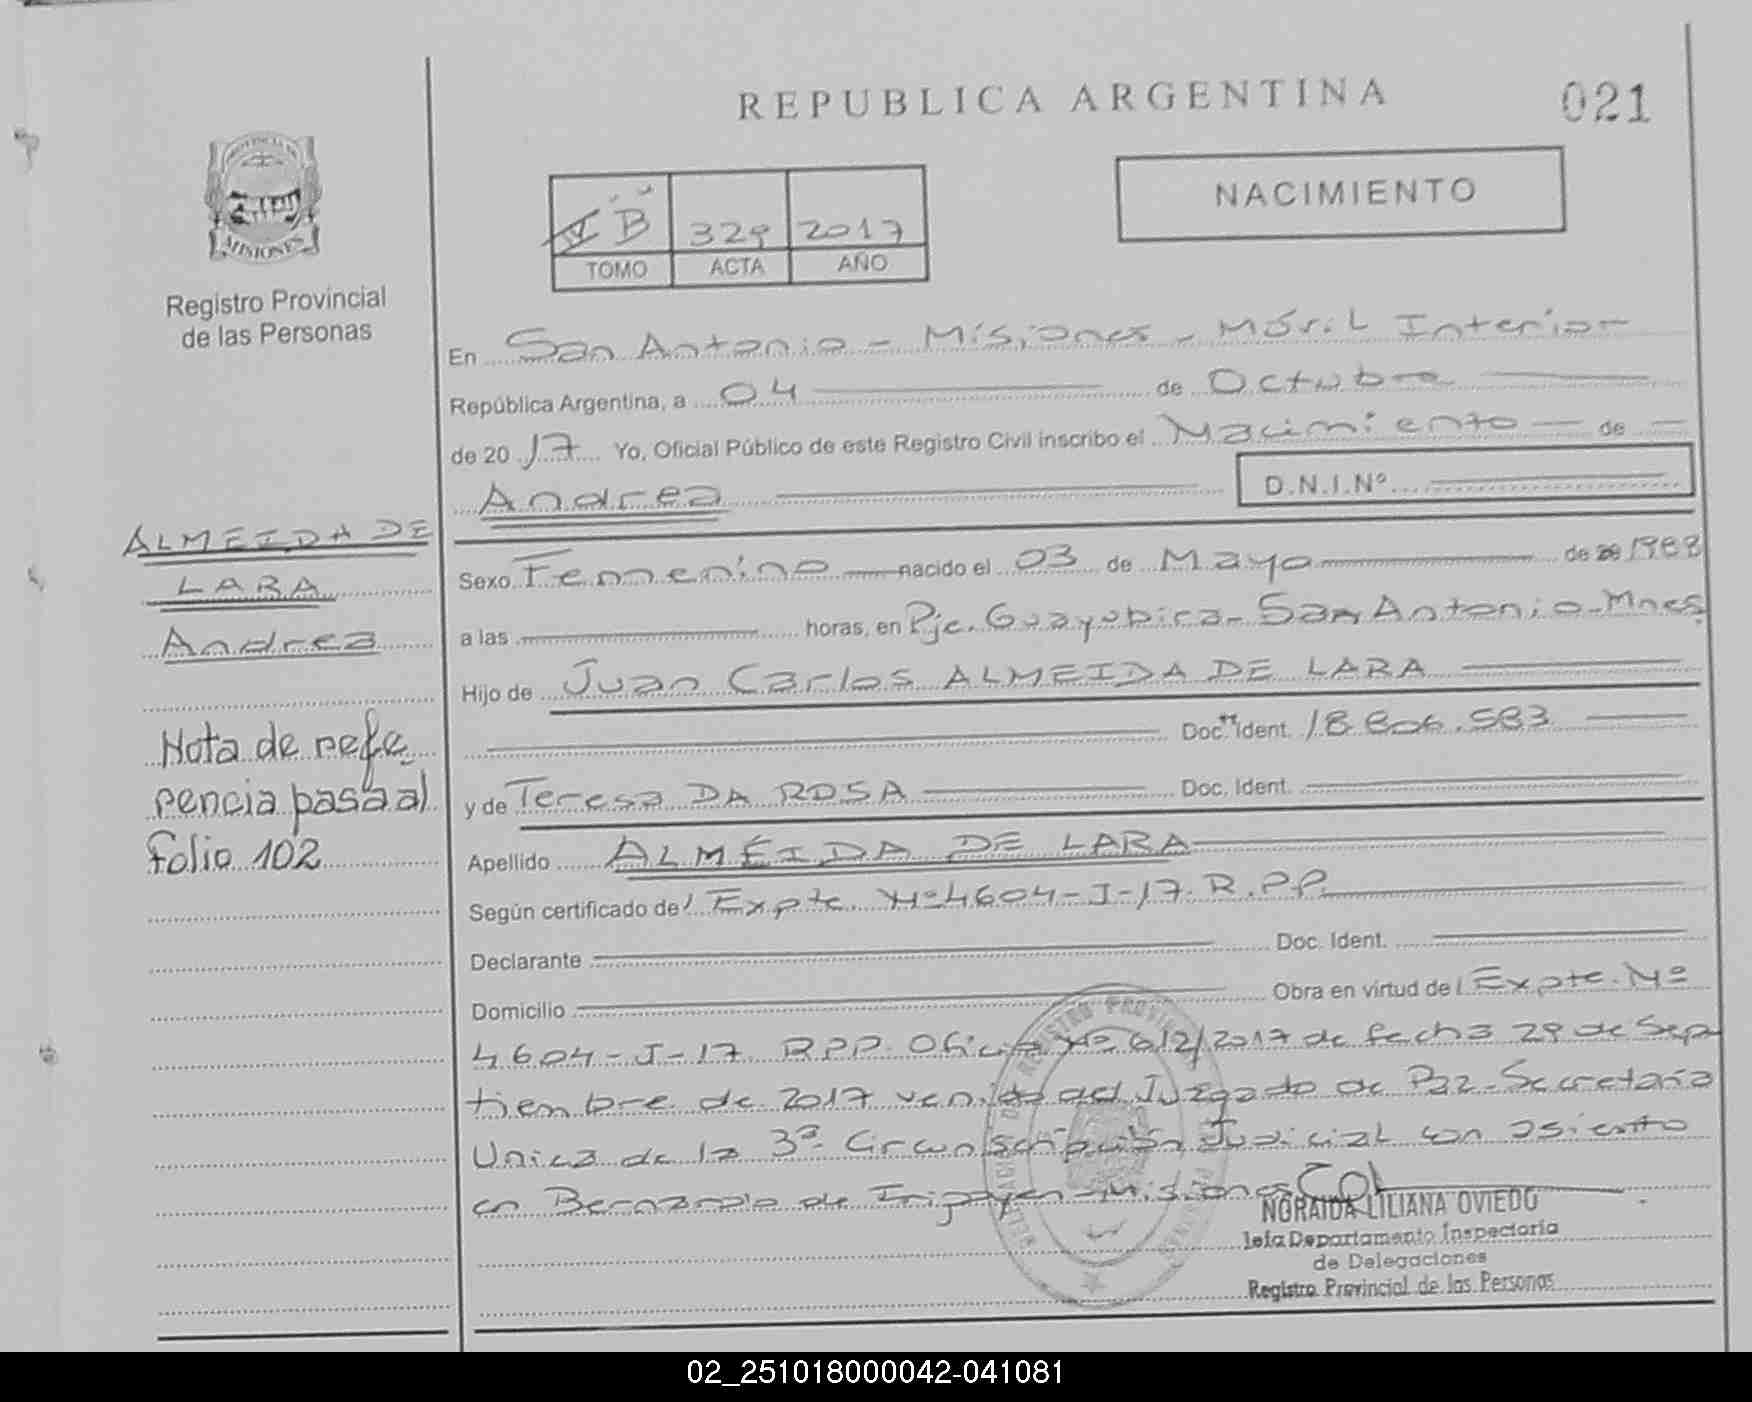 REPUBLICA ARGENTINA
021
PROVINCIA DE
MISIONES
Registro Provincial
de las Personas
B 329 2017
TOMO ACTA AÑO
NACIMIENTO
En San Antonio - Misiones - Móvil Interior
República Argentina, a 04 de Octubre
de 2017 Yo, Oficial Público de este Registro Civil inscribo el Nacimiento de
Andrea D.N.I.Nº
ALMEIDA DE
LARA
Andrea
Nota de refe
rencia pasa al
Folio 102
Sexo Femenino nacido el 03 de Mayo de 1988
a las horas, en Pje. Guayubira - San Antonio - Mnes
Hijo de Juan Carlos ALMEIDA DE LARA
Doc. Ident. 18.806.583
y de Teresa DA ROSA Doc. Ident.
Apellido ALMEIDA DE LARA
Según certificado de Expte. Nº 4604-J-17. R.P.P.
Declarante Doc. Ident.
Domicilio Obra en virtud de Expte. Nº
4604-J-17 RPP. Oficio Nº 612/2017 de fecha 29 de Sep
tiembre de 2017 venido del Juzgado de Paz - Secretaría
Unica de la 3ª Circunscripción Judicial con asiento
en Bernardo de Irigoyen - Misiones
NORAIDA LILIANA OVIEDO
Jefa Departamento Inspectoria
de Delegaciones
Registro Provincial de las Personas
02_251018000042-041081